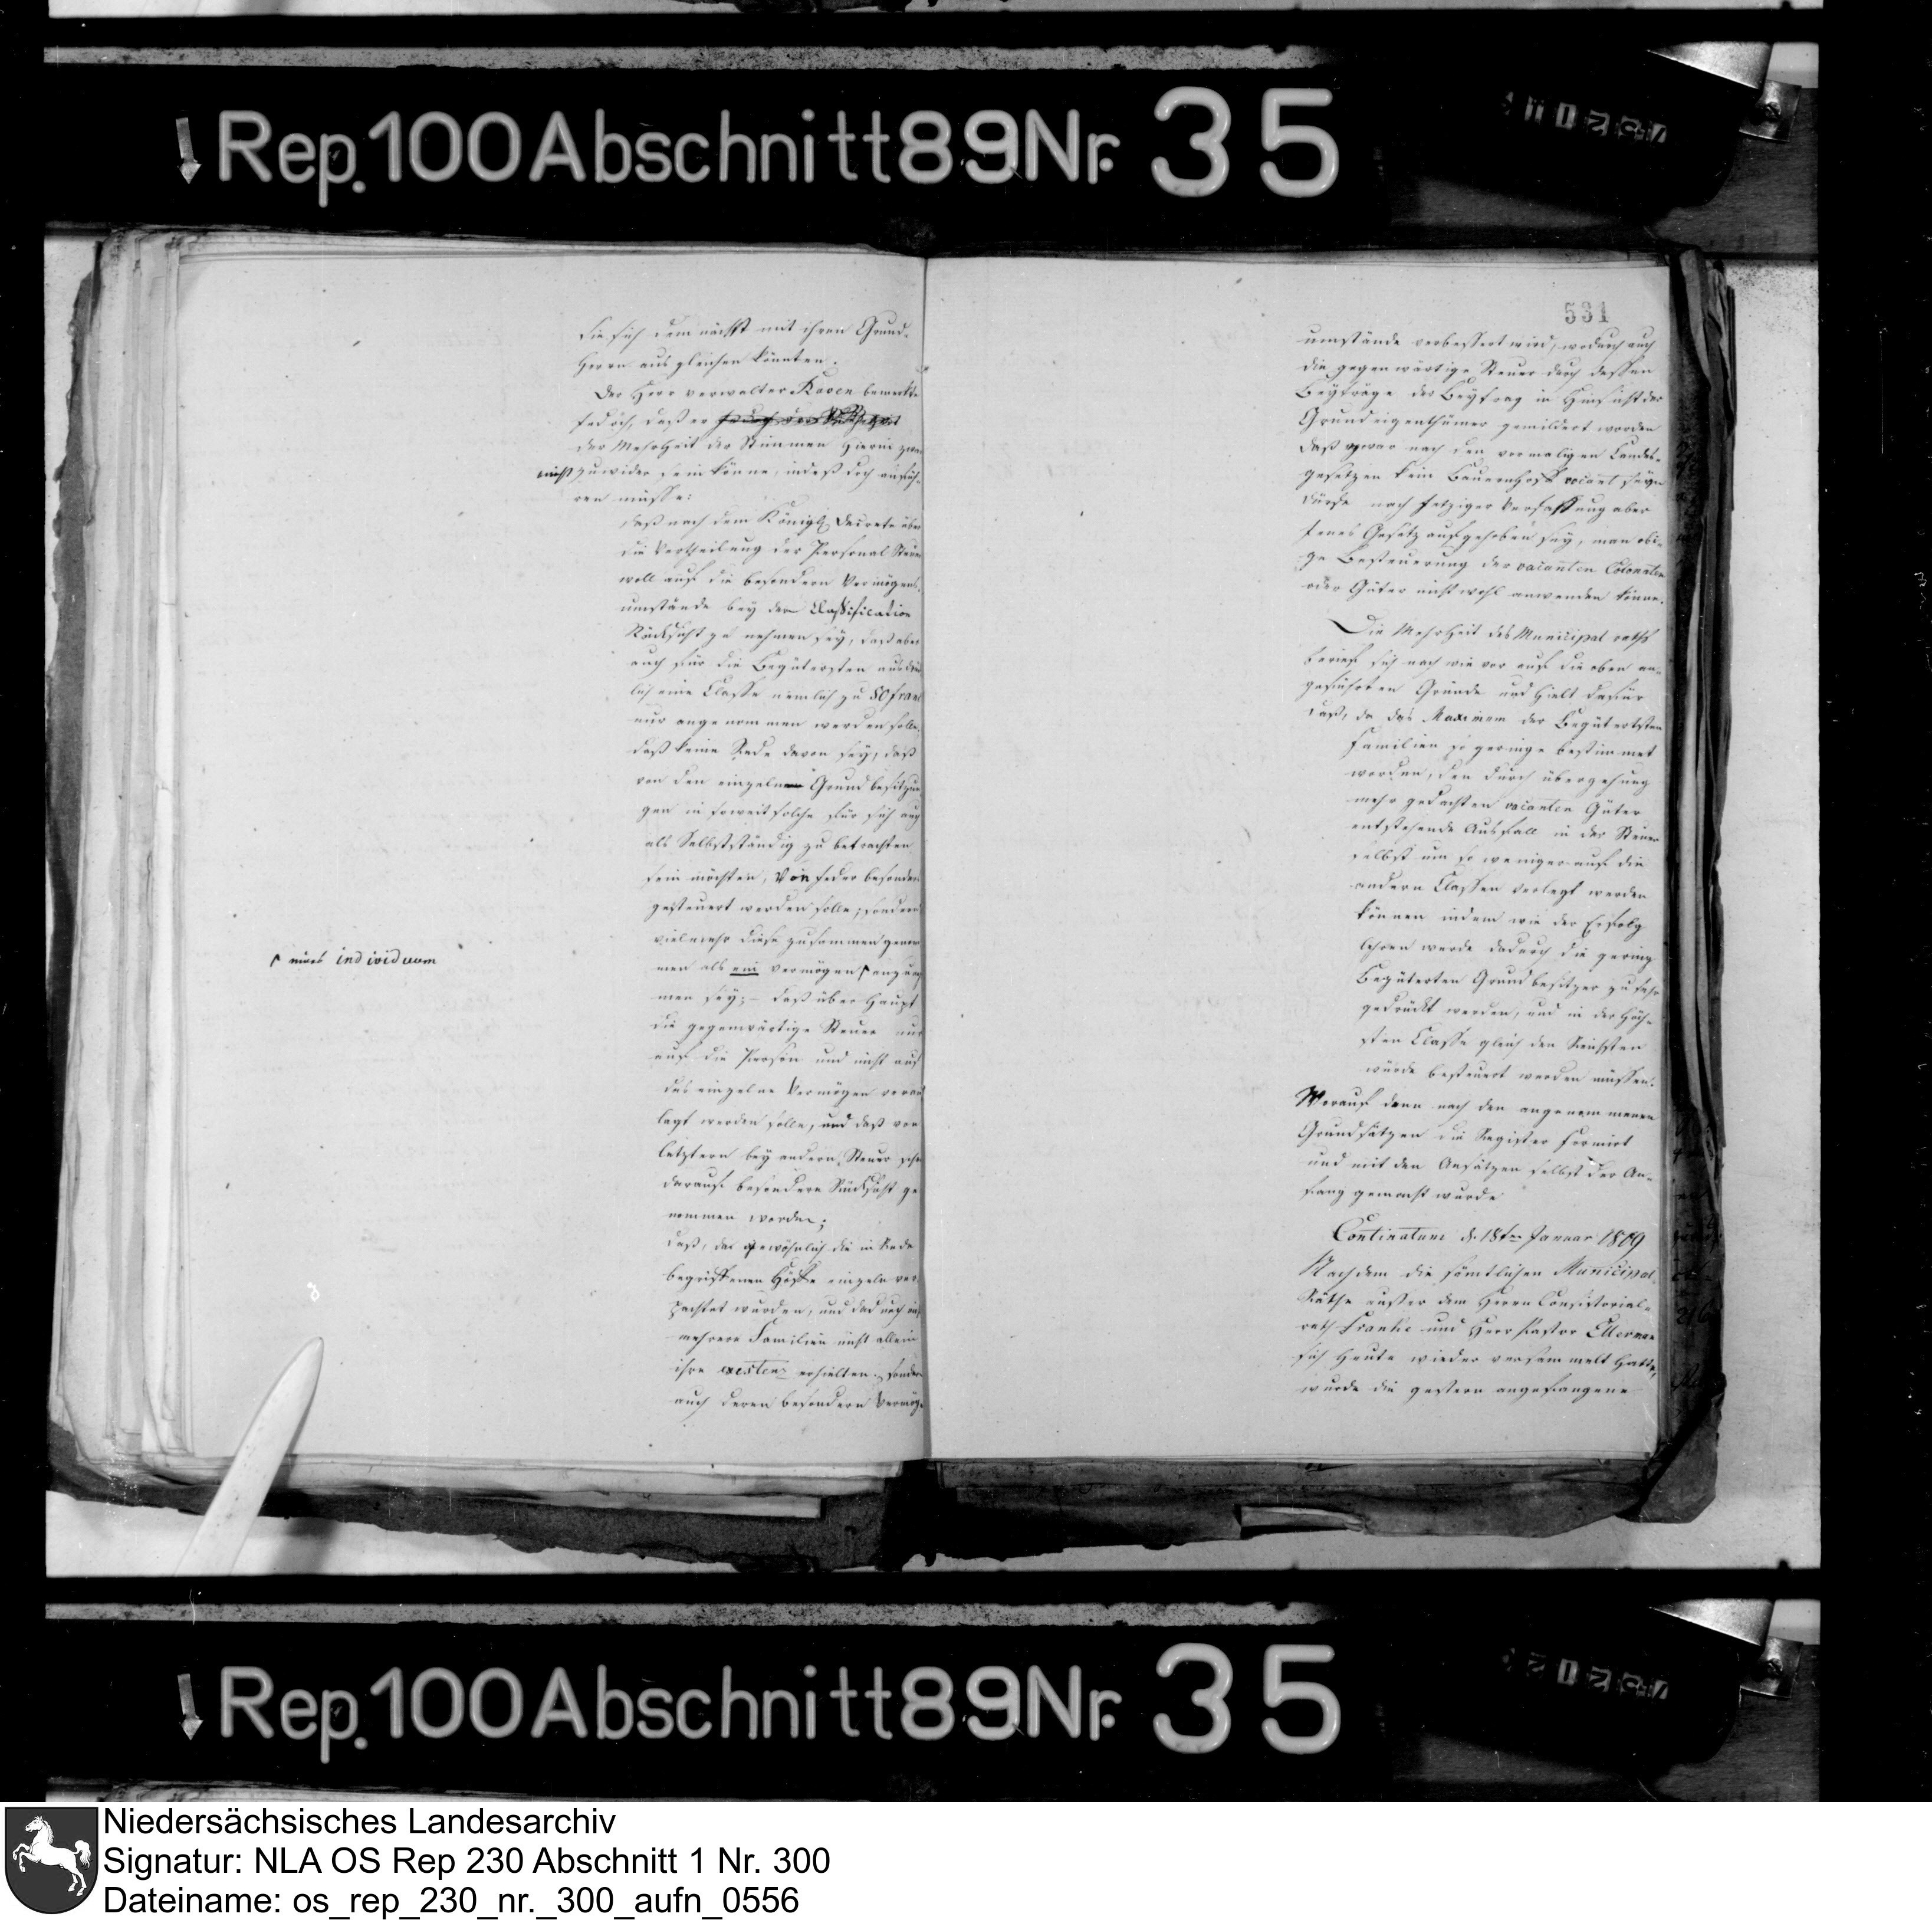 Rep. 100 Abschnitt 89 Nr. 35
sie sich dem nächst mit ihren Grund-
Herrn ausgleichen könnten.
Der Herr verwalter Kaven bemerkte
jedoch, daß er
der Mehrheit der Stimmen hierin zwar
nicht zuwider sein könne, indeß doch anfüh-
ren müsse:
daß nach dem Königl. Decrete über
die Vertheilung der Personal Steuer
woll auf die besondern Vermögens-
umstände bey der Classification
Rücksicht zu nehmen sey, daß aber
auch für die Begütersten
lich eine Classe nemlich zu 50 frank
nur angenommen werden solle,
daß keine Rede davon sey, daß
von den einzeln Grundbesitzun
gen in soweit solche für sich auch
als Selbstständig zu betrachten
sein möchten, Von jeder besonders
gesteuert werden solle; sondern
vielmehr diese zusammen genom
men als ein vermögen
eines individuum
men sey; – daß über Haupt
die gegenwärtige Steuer nur
auf die Person und nicht auf
das einzelne Vermögen veran
lagt werden solle, und daß von
letztern bey andern Steuer schon
darauf besondere Rücksicht ge
nommen worden;
daß, da gewöhnlich die in Rede
begriffenen Höfe einzeln ver-
pachtet wurden, und dadurch
mehrere Familien nicht allein
ihre existenz erhielten, sondern
auch deren besondern Vermög-
531
umstände verbessert wird, wodurch auch
die gegenwärtige Steuer durch dessen
Beyträge der Beytrag in Hinsicht der
Grundeigenthümer gemildert worden
daß zwar nach den vormaligen Landes-
gesetzen kein Bauernhoff vacant seyn
dürfe nach jetziger Verfassung aber
jenes Gesetz aufgehoben sey, man obi-
ge Besteuerung der vacanten Colonaten
oder Güter nicht wohl anwenden könne.
Die Mehrheit des Municipal raths
berief sich nach wie vor auf die oben an-
geführten Gründe und hielt dafür
daß, da das Maximum der Begütertsten
Familien so geringe bestimmet
worden, den durch übergehung
mehr gedachten vacanten Güter
entstehende Ausfall in der Steuer
selbst um so weniger auf die
andern Classen verlegt werden
können indem wie der Erfolg
lehren werde dadurch die gering
Begüterten Grundbesitzer zu sehr
gedrückt werden, und in der Höch-
sten Classe gleich den Reichsten
würde besteuert werden müssen.
Worauf denn nach den angenommenen
Grundsätzen die Register formirt
und mit den Ansätzen selbst der An-
fang gemacht wurde
Continatum d. 18ten Januar 1809
Nachdem die sämtlichen Municipal-
Räthe außer dem Herrn Consistorial-
rath Franke und Herr Pastor Ellerman
sich heute wieder versammelt hatte,
wurde die gestern angefangene
Rep. 100 Abschnitt 89 Nr. 35
Niedersächsisches Landesarchiv
Signatur: NLA OS Rep 230 Abschnitt 1 Nr. 300
Dateiname: os_rep_230_nr._300_aufn_0556